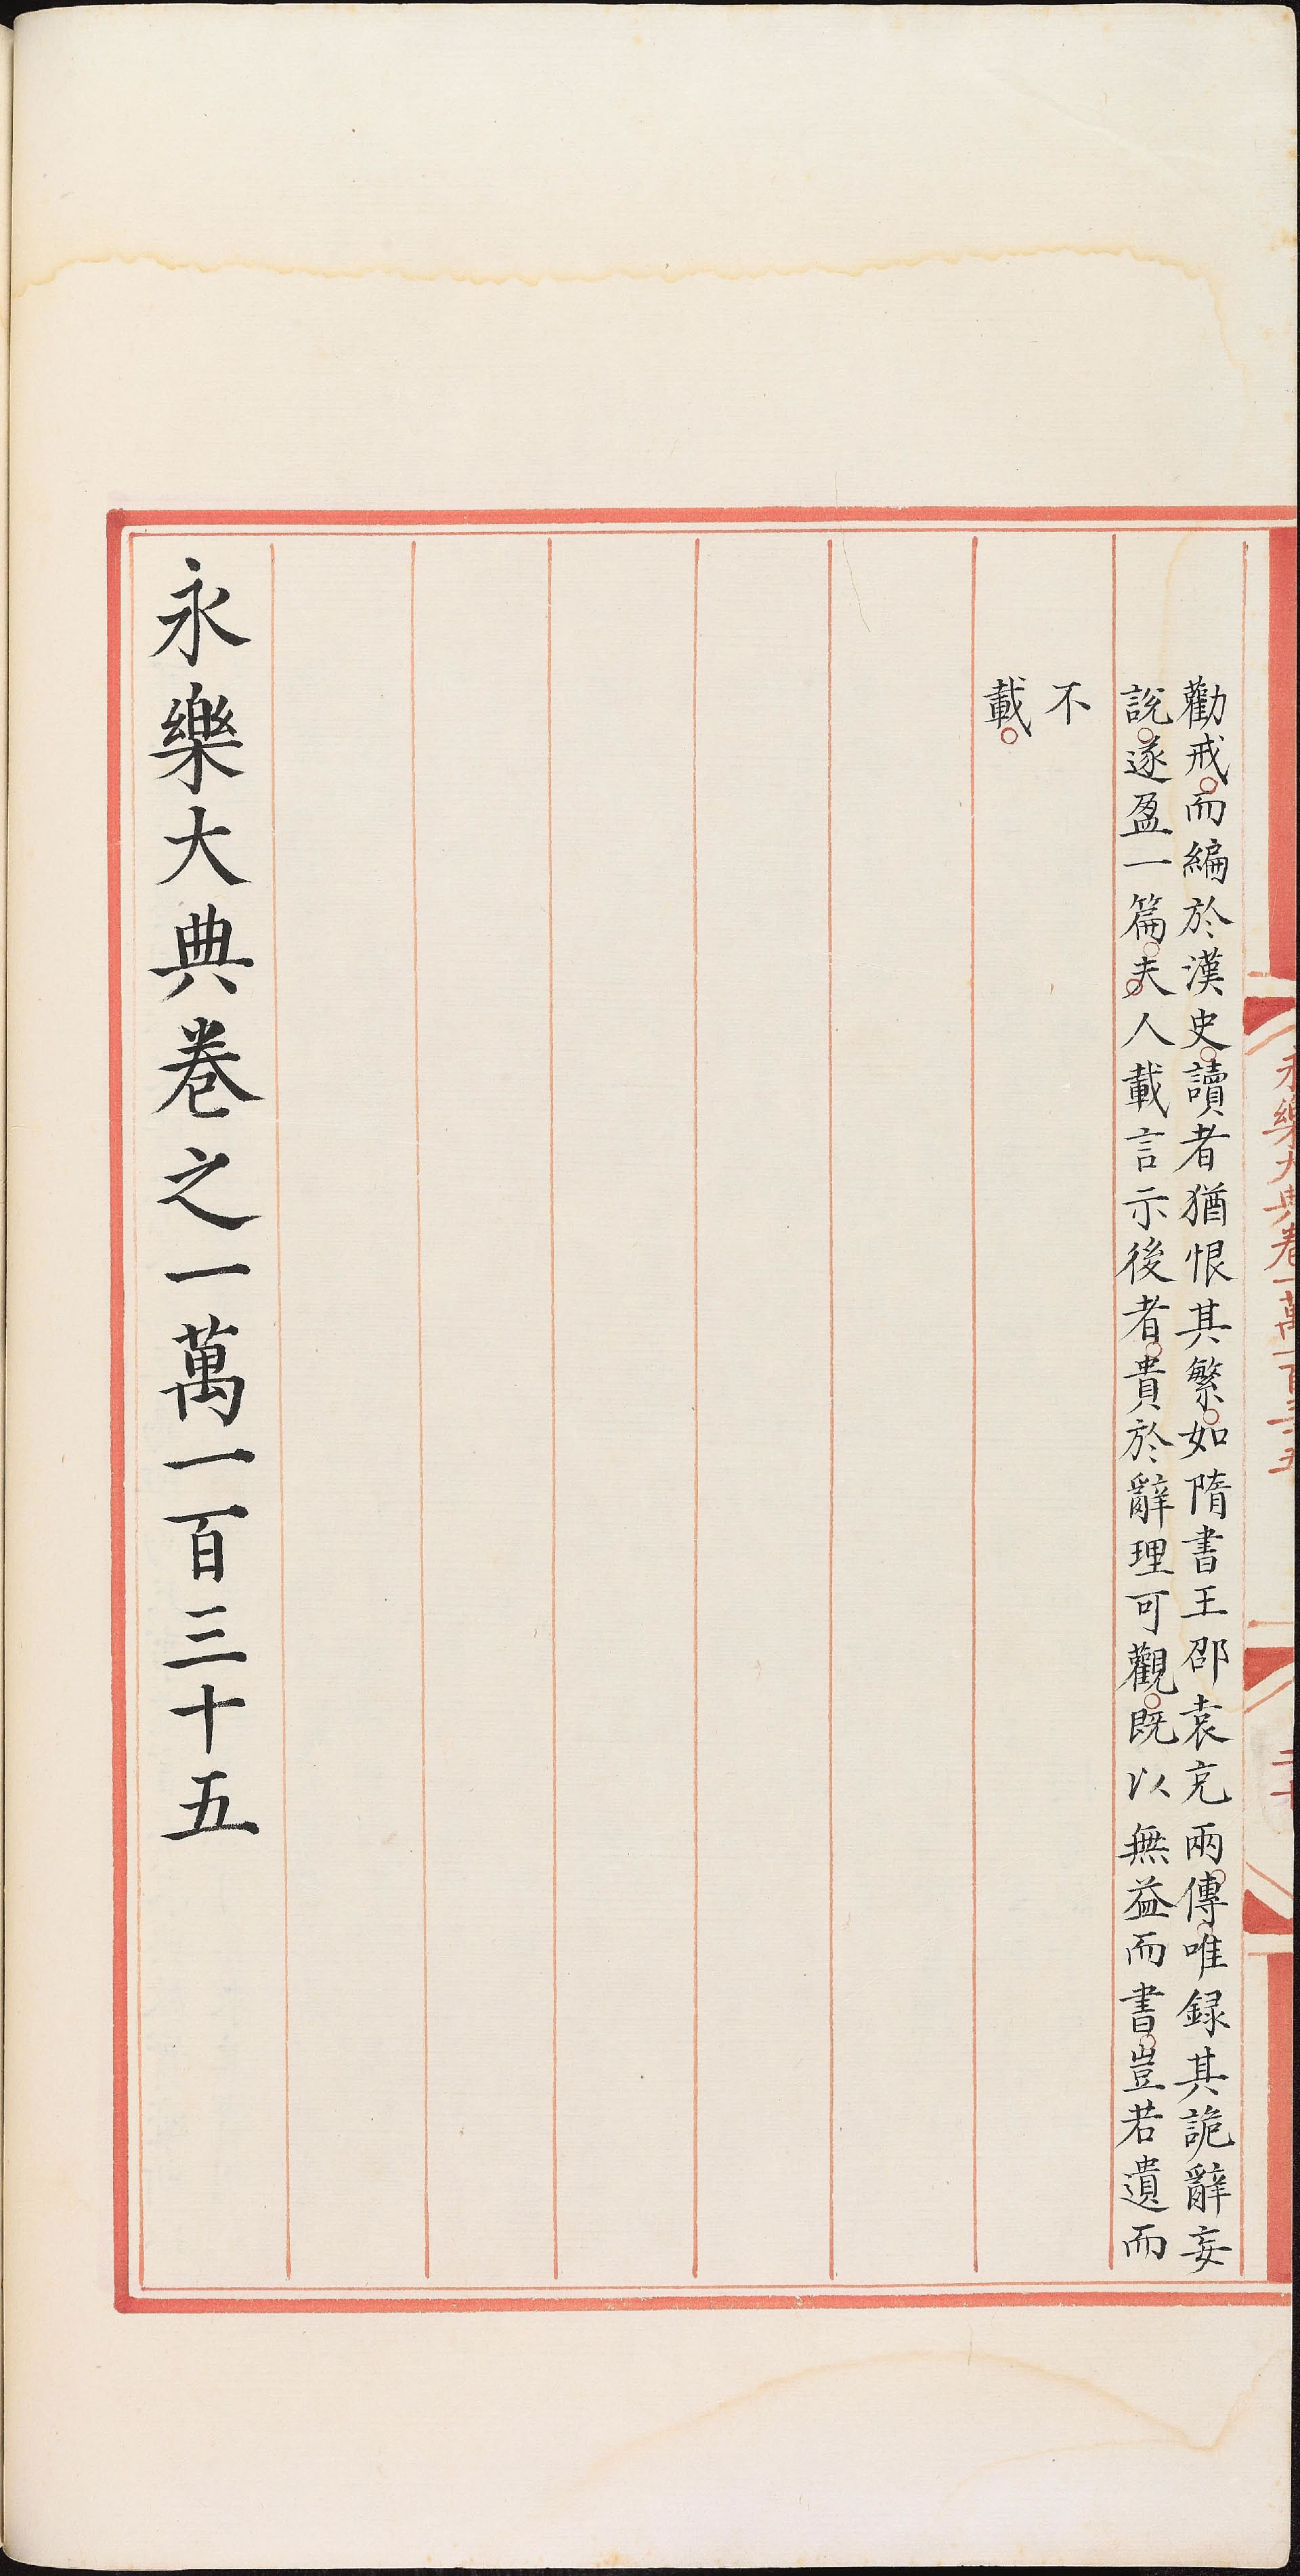 永樂大典卷一萬一百三十五
勸戒。而編於漢史。讀者猶恨其繁。如隋書王邵袁充兩傳。唯録其詭辭妄
說。遂盈一篇。夫人載言示後者。貴於辭理可觀。既以無益而書。豈若遺而
不
載。
永樂大典卷之一萬一百三十五